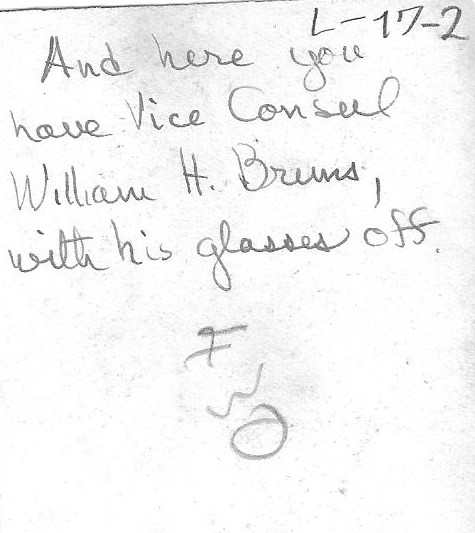 L-17-2
And here you
have Vice Consul
William H. Bruns,
with his glasses off.